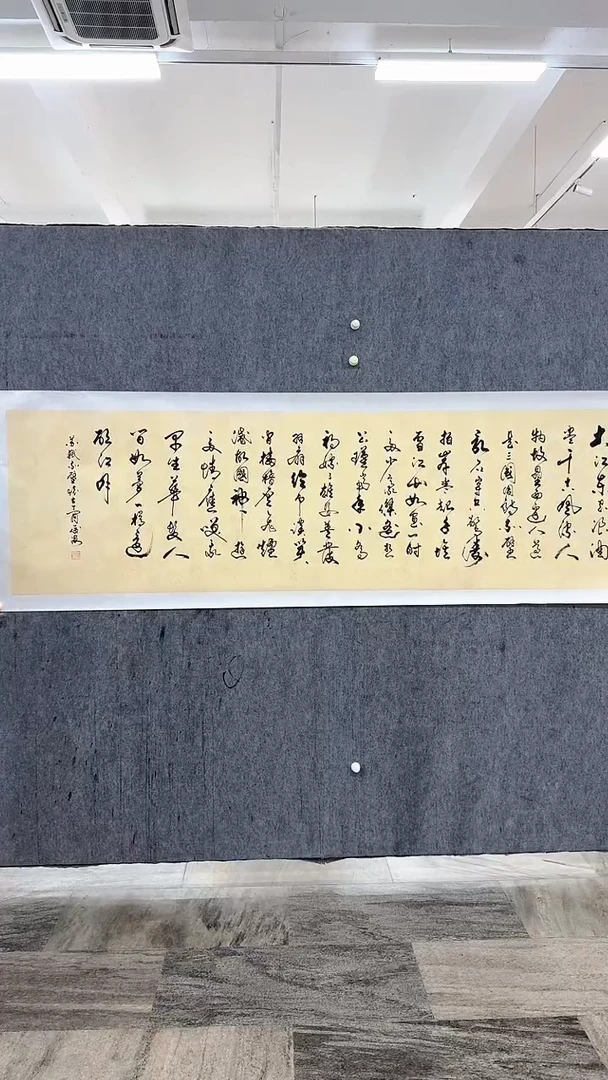 大江东去浪淘
尽千古风流人
物故垒西边人道
是三國周郎赤壁
乱石穿空惊涛
拍岸卷起千堆
雪江山如画一时
多少豪傑遥想
公瑾當年小乔
初嫁了雄姿英發
羽扇纶巾谈笑
间樯橹灰飞煙
滅故國神游
多情應笑我
早生華髮人
间如夢一樽还
酹江月
苏轼赤壁怀古